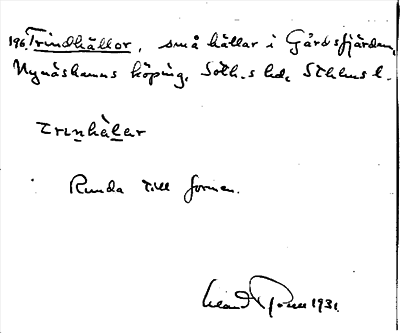 196 Trindhällor, små hällar i Gårdsfjärden,
Nynäshamns köping, Soth.s hd, Sthlms l.
trinhä̀lar
Runda till formen.
1931.